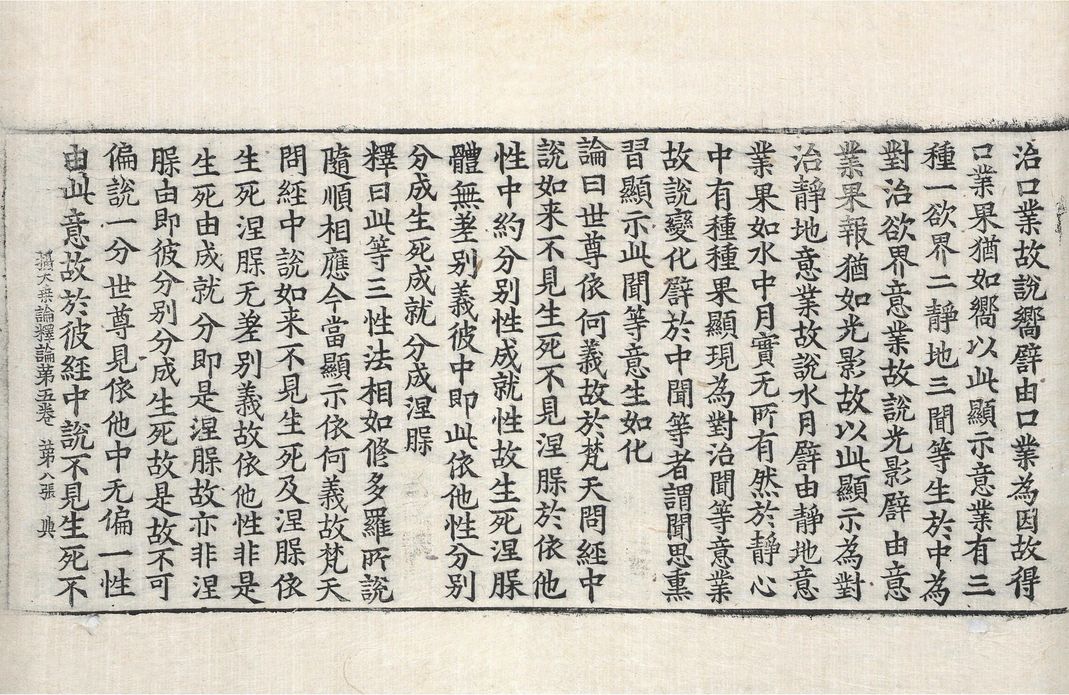 治口業故說嚮譬由口業為因故得
口業果猶如嚮以此顯示意業有三
種一欲界二靜地三聞等生於中為
對治欲界意業故說光影譬由意
業果報猶如光影故以此顯示為對
治靜地意業故說水月譬由靜地意
業果如水中月實无所有然於靜心
中有種種果顯現為對治聞等意業
故說變化譬於中聞等者謂聞思熏
習顯示此聞等意生如化
論曰世尊依何義故於梵天問經中
說如来不見生死不見涅槃於依他
性中約分別性成就性故生死涅槃
體無差別義彼中即此依他性分別
分成生死成就分成涅槃
釋曰此等三性法相如修多羅所說
隨順相應今當顯示依何義故梵天
問經中說如来不見生死及涅槃依
生死涅槃无差別義故依他性非是
生死由成就分即是涅槃故亦非涅
槃由即彼分別分成生死故是故不可
偏說一分世尊見依他中无偏一性
由此意故於彼經中說不見生死不
攝大乘論釋論第五卷 苐八張 典